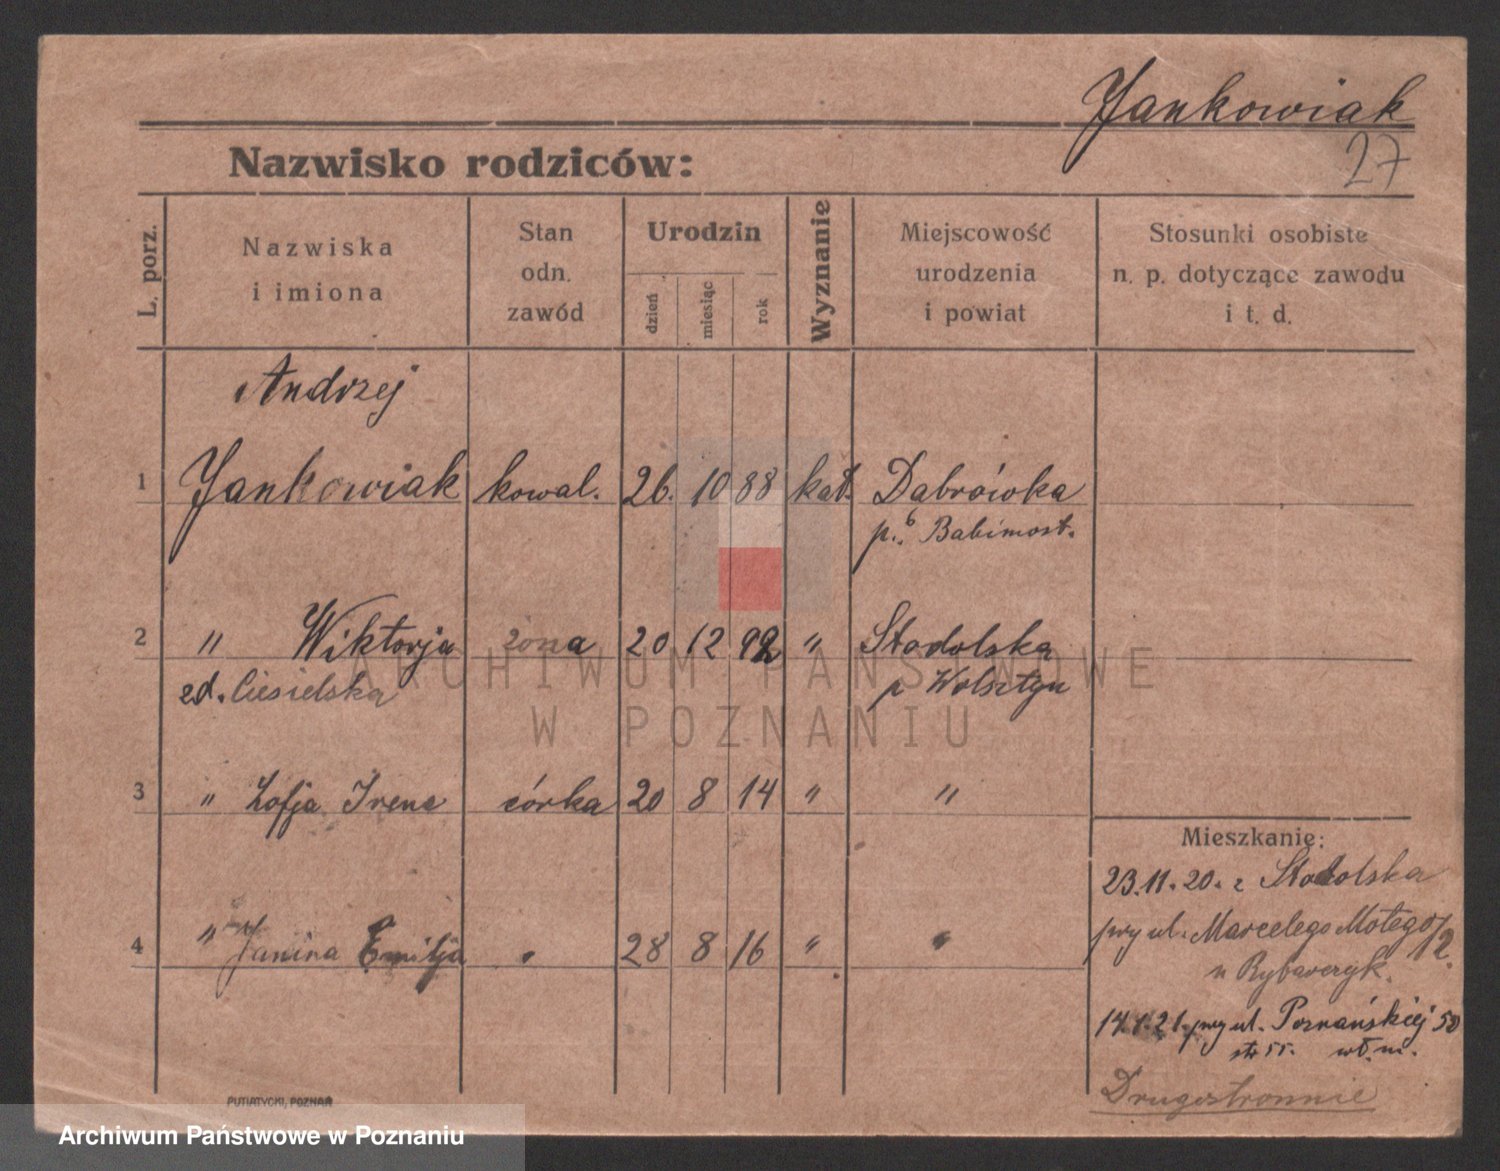 Jankowiak
27
Nazwisko rodziców:
L. porz.
Nazwiska
i imiona
Stan
odn.
zawód
Urodzin
dzień
miesiąc
rok
Wyznanie
Miejscowość
urodzenia
i powiat
Stosunki osobiste
n. p. dotyczące zawodu
i t. d.
Andrzej
1 Jankowiak kowal. 26. 10 88 kat. Dąbrówka
p. Babimost.
2 " Wiktorja żona 20 12 92 " Stodolska
zd. Ciesielska p Wolsztyn
3 " Zofja Irena córka 20 8 14 " "
4 " Janina Emilja " 28 8 16 " "
Mieszkanie:
23.11.20. z Stodolska
przy ul. Marcelego Motego
14.1.21. przy ul. Poznańskiej 50
str 55. wł. m.
Drugostronnie
PUTIATYCKI, POZNAŃ
ARCHIWUM PAŃSTWOWE
W POZNANIU
Archiwum Państwowe w Poznaniu